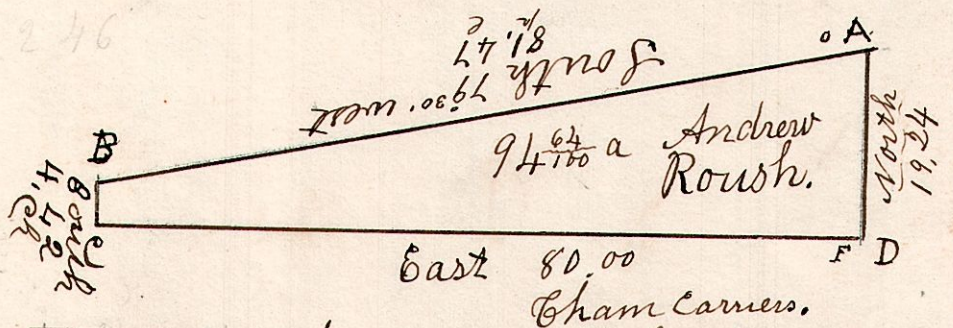 246
A
South 79°30' west
81, 47
B
94 64/100 a Andrew
Roush.
North
19,24
South
4,42
Ch
East 80.00
F D
Cham Carriers.